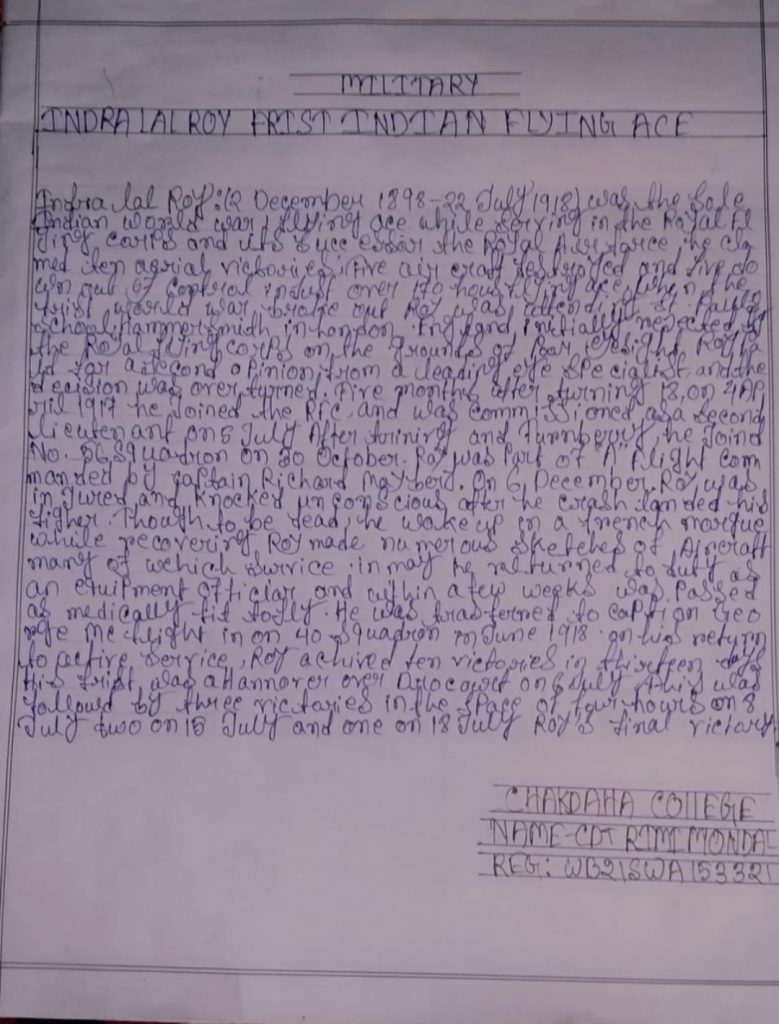 MILITARY
INDRA LAL ROY FRIST INDIAN FLYING ACE
Indra Lal Roy:(2 December 1898-22 July 1918) was the sole
Indian world war 1 flying ace while serving in the Royal Fl
ying corps and its successor the Royal he cla
med ten agrial victories; Five air craft destroyed and five do
wn out of control in Just over 170 hours flying ace, when the
frist world war broke out Roy was attending st. Paul's
school, Hammersmith, in London, England, initially rejected by
the Royal flying corps on the grounds of poor eyesight Roy Pa
id for a second opinion from a leading eye specialist and the
decision was over turned. Five months after turning 18, on 4 AP
ril 1917 he Joined the RFC. and was commissioned as a second
lieutenant on 5 July After trining and Turnberry, he Joind
No. 56, squadron on 30 October. Roy was Part of "A" Flight com
manded by captain Richard Maybery. On 6 December, Roy was
in Jured and Knocked unconscious after he crash landed his
figher. Though to be dead, he wake up in a french morgue
while recovering Roy made numerous sketches of Aircraft
many of wehich survice. in may he returned to duty as
an etuitment officiar and within a few weeks was Passed
as medically fit to fly. He was trasferned to caption Geo
rge Mc flight in on 40 squadron in June 1918. on his return
to active service, Roy achived ten victories in thirteen days
His frist, was a Hannover over Drocourt on 6 July This was
followed by three victaries in the space of four hours on 8
July two on 15 July and one on 18 July Roy's final victary
CHAKDAHA COLLEGE
NAME-CDT RIMI MONDAL
REG: WB21SWA153321